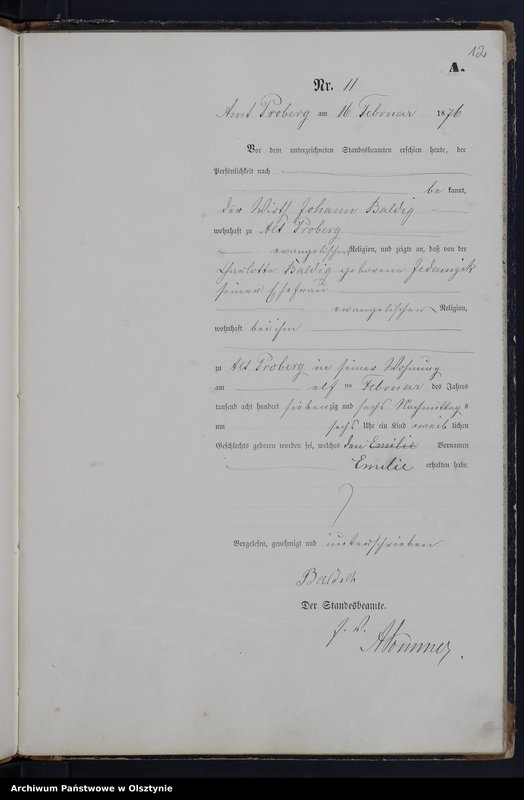 12
A.
Nr. 11
Amt Proberg am 16 Februar 1876
Vor dem unterzeichneten Standesbeamten erschien heute, der
Persönlichkeit nach
be kannt,
der Wirth Johann Baldig
wohnhaft zu Alt Proberg
evangelischer Religion, und zeigte an, daß von der
Charlotte Baldig geborene Jedamzik
seiner Ehefrau
evangelischer Religion,
wohnhaft bei ihm
zu Alt Proberg in seiner Wohnung
am elf ten Februar des Jahres
tausend acht hundert siebenzig und sechs Nachmittags
um sechs Uhr ein Kind weib lichen
Geschlechts geboren worden sei, welches den Emilie Vornamen
Emilie erhalten habe.
Vorgelesen, genehmigt und unterschrieben
Der Standesbeamte.
Archiwum Państwowe w Olsztynie